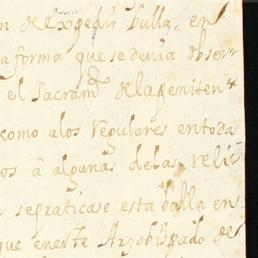 n de Expedir bulla, en
a forma que se devia obser-
el Sacram.to de la peniten.a
como a los regulares en toda
os â algunas de las reli
se praticase esta bulla en-
que en este Arzobispado de